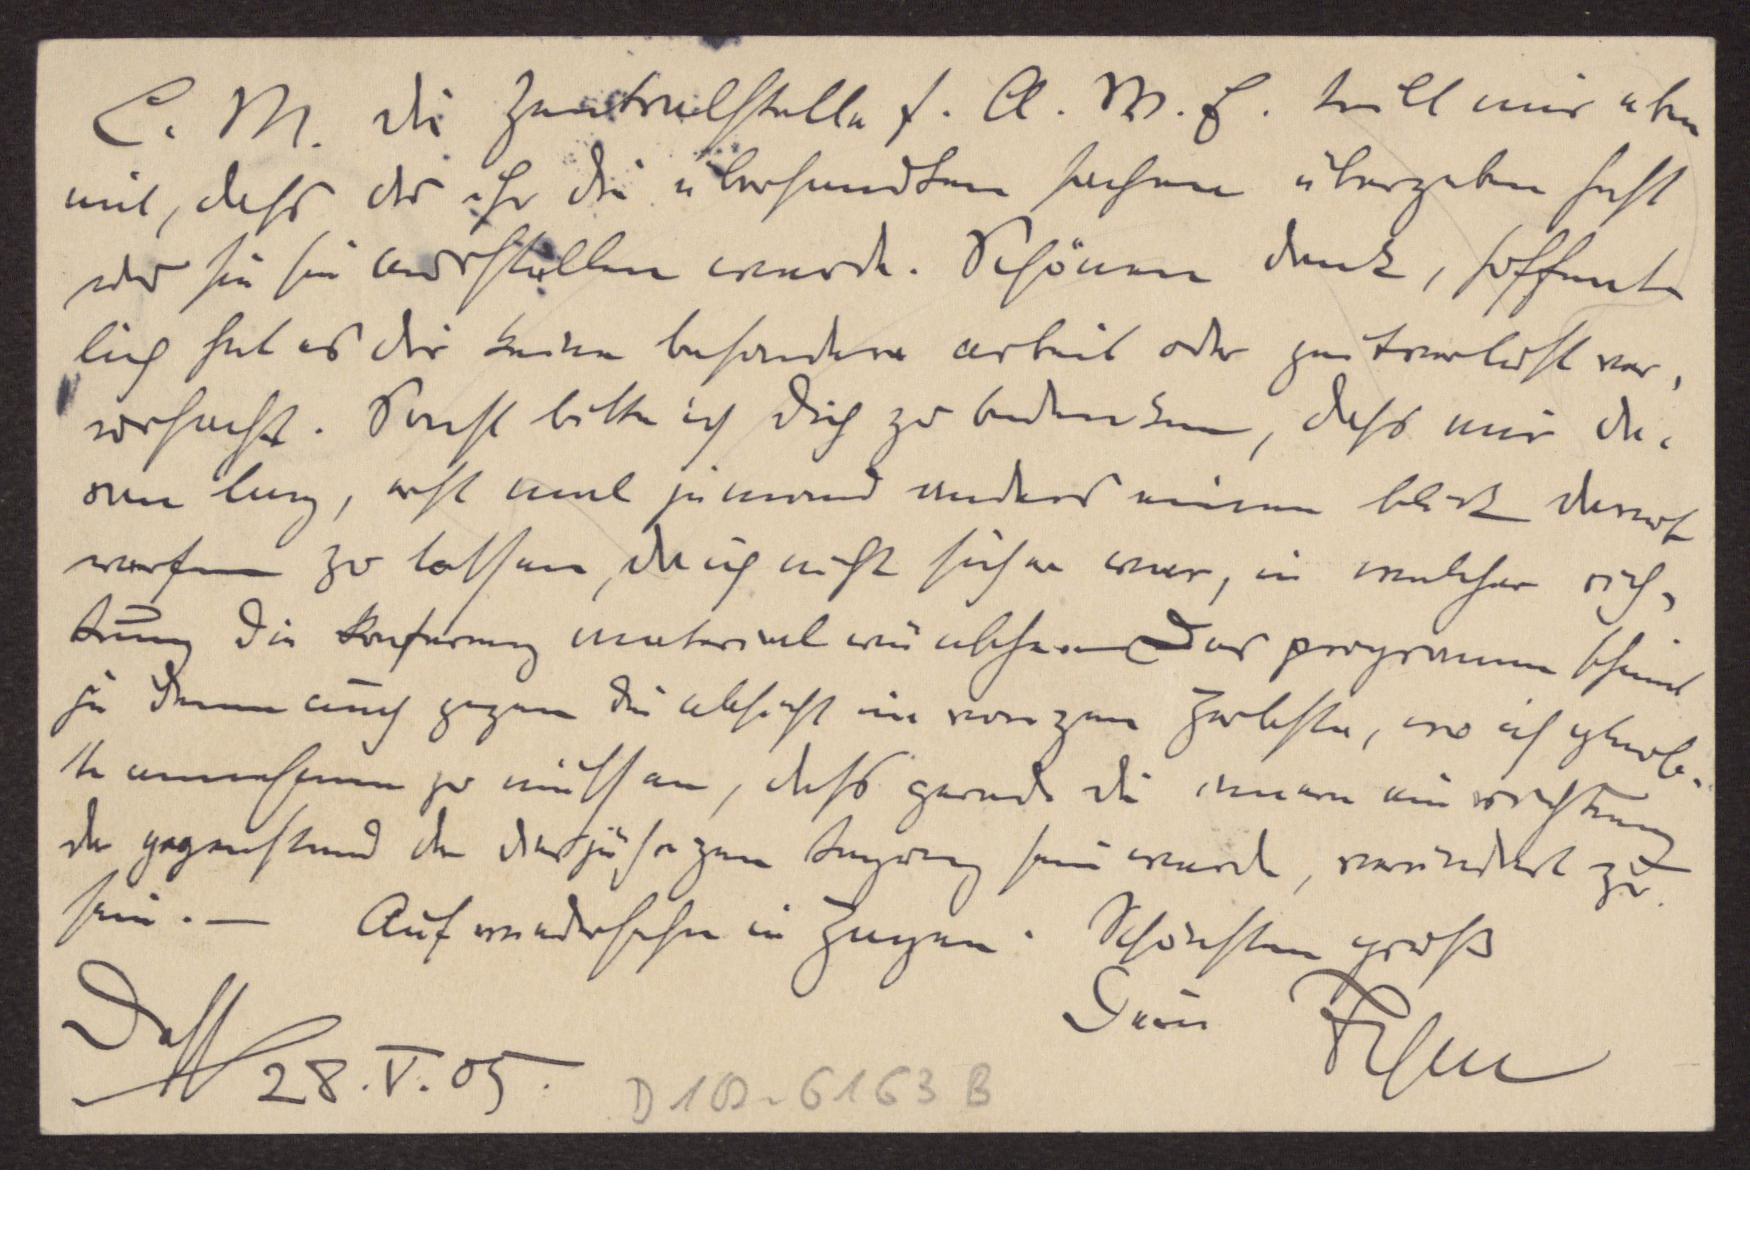 L. M. die Zentralstelle f. A. W. E. teilt mir eben
mit, dass du ihr die übersandten sachen übergeben hast
und sie sie ausstellen werde. Schönen dank, hoffent-
lich hat es dir keine besondere arbeit oder zeitverlust ver-
ursacht. Sonst bitte ich dich zu bedenken, dass mir da-
ran lag, erst mal jemand anders einen blick darauf
werfen zu lassen, da ich nicht sicher war, in welcher rich-
tung die konferenz material wünsche. Das programm scheint
ja denn auch gegen die absicht im vorigen herbste, wo ich glaub-
te annehmen zu müssen, dass gerade die innere einrichtung
der gegenstand der diesjährigen tagung sein werde, verändert zu
sein. — Auf wiedersehn in Hagen. Schönsten gruß
Dein
28. V. 05.
D 102-6163 B